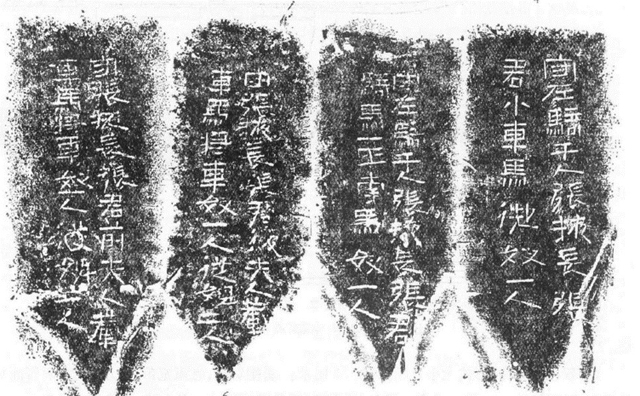 守左騎千人張掖長張
君小車馬御奴一人
守左騎千人張掖長張君
騎馬一匹牽馬奴一人
守張掖長張君後夫人輦
車馬將車奴一人從婢二人
守張掖長張君前夫人輦
車馬將車奴一人從婢一人